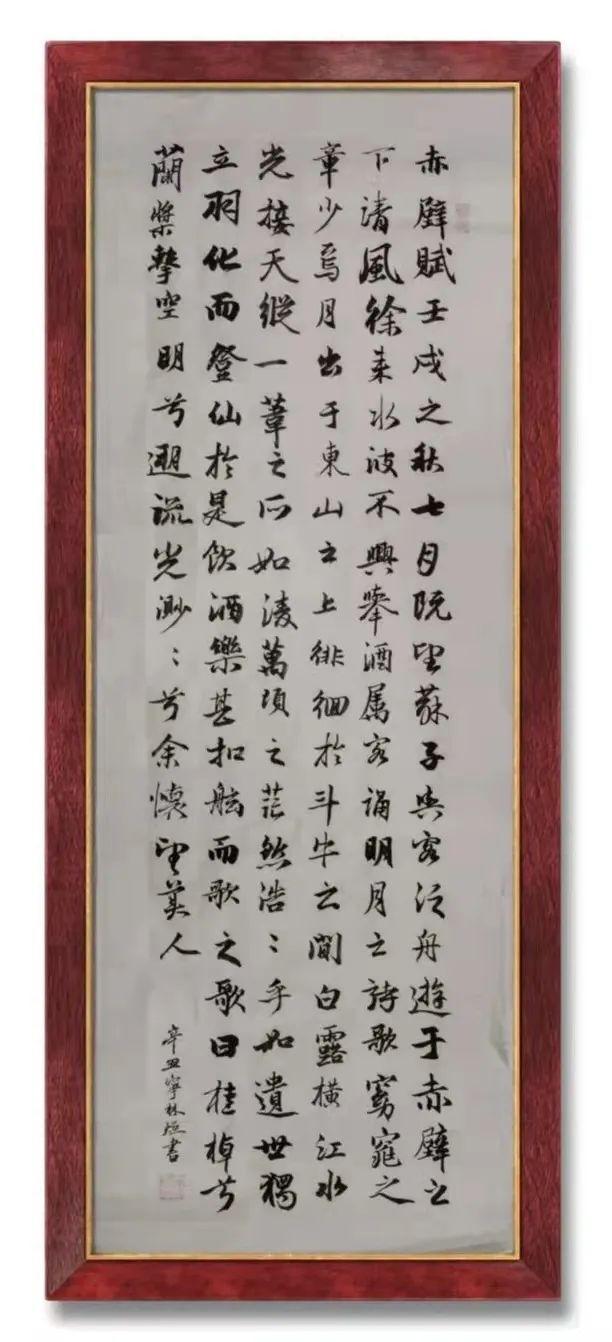 赤壁賦壬戌之秋七月既望蘇子與客泛舟遊于赤壁之
下清風徐来水波不興舉酒属客誦明月之詩歌窈窕之
章少焉月出于東山之上徘徊於斗牛之間白露橫江水
光接天縱一葦之所如淩萬頃之茫然浩〻乎如遺世獨
立羽化而登仙於是飲酒樂甚扣舷而歌之歌曰桂棹兮
蘭槳擊空明兮遡流光渺〻兮余懷望美人
辛丑寧林書